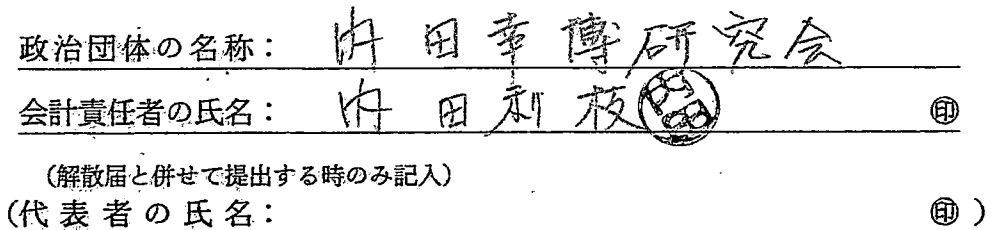 政治団体の名称： 内田幸博研究会
会計責任者の氏名： 内田利枝 ㊞
（解散届と併せて提出する時のみ記入）
（代表者の氏名： ㊞）